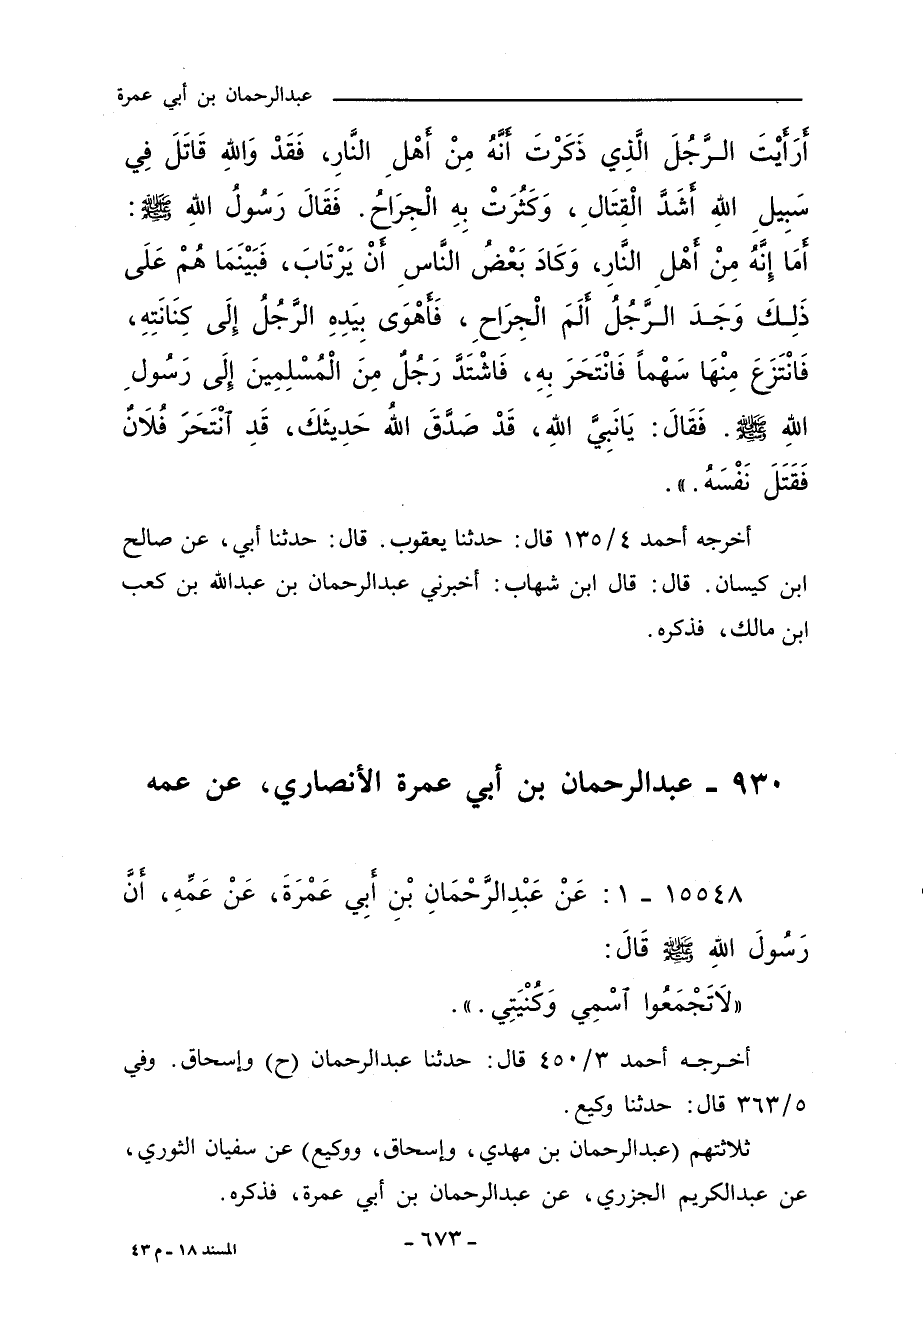 عبدالرحمان بن أبي عمرة
أَرَأَيْتَ الـرَّجُلَ الَّذِي ذَكَرْتَ أَنَّهُ مِنْ أَهْلِ النَّارِ، فَقَدْ وَاللهِ قَاتَلَ فِي
سَبِيلِ اللهِ أَشَدَّ الْقِتَالِ، وَكَثُرَتْ بِهِ الْجِرَاحُ. فَقَالَ رَسُولُ اللهِ ﷺ:
أَمَا إِنَّهُ مِنْ أَهْلِ النَّارِ، وَكَادَ بَعْضُ النَّاسِ أَنْ يَرْتَابَ، فَبَيْنَمَا هُمْ عَلَى
ذَلِـكَ وَجَـدَ الـرَّجُلُ أَلَمَ الْجِرَاحِ، فَأَهْوَى بِيَدِهِ الرَّجُلُ إِلَى كِنَانَتِهِ،
فَانْتَزَعَ مِنْهَا سَهْماً فَانْتَحَرَ بِهِ، فَاشْتَدَّ رَجُلٌ مِنَ الْمُسْلِمِينَ إِلَى رَسُولِ
اللهِ ﷺ. فَقَالَ: يَانَبِيَّ اللهِ، قَدْ صَدَّقَ اللهُ حَدِيثَكَ، قَدِ ٱنْتَحَرَ فُلَانٌ
فَقَتَلَ نَفْسَهُ.».
أخرجه أحمد ٤/١٣٥ قال: حدثنا يعقوب. قال: حدثنا أبي، عن صالح
ابن كيسان. قال: قال ابن شهاب: أخبرني عبدالرحمان بن عبدالله بن كعب
ابن مالك، فذكره.
٩٣٠ - عبدالرحمان بن أبي عمرة الأنصاري، عن عمه
١٥٥٤٨ - ١: عَنْ عَبْدِالرَّحْمَانِ بْنِ أَبِي عَمْرَةَ، عَنْ عَمِّهِ، أَنَّ
رَسُولَ اللهِ ﷺ قَالَ:
«لَاتَجْمَعُوا ٱسْمِي وَكُنْيَتِي.».
أخـرجـه أحمد ٣/٤٥٠ قال: حدثنا عبدالرحمان (ح) وإسحاق. وفي
٥/٣٦٣ قال: حدثنا وكيع.
ثلاثتهم (عبدالرحمان بن مهدي، وإسحاق، ووكيع) عن سفيان الثوري،
عن عبدالكريم الجزري، عن عبدالرحمان بن أبي عمرة، فذكره.
- ٦٧٣ -
المسند ١٨ - م ٤٣